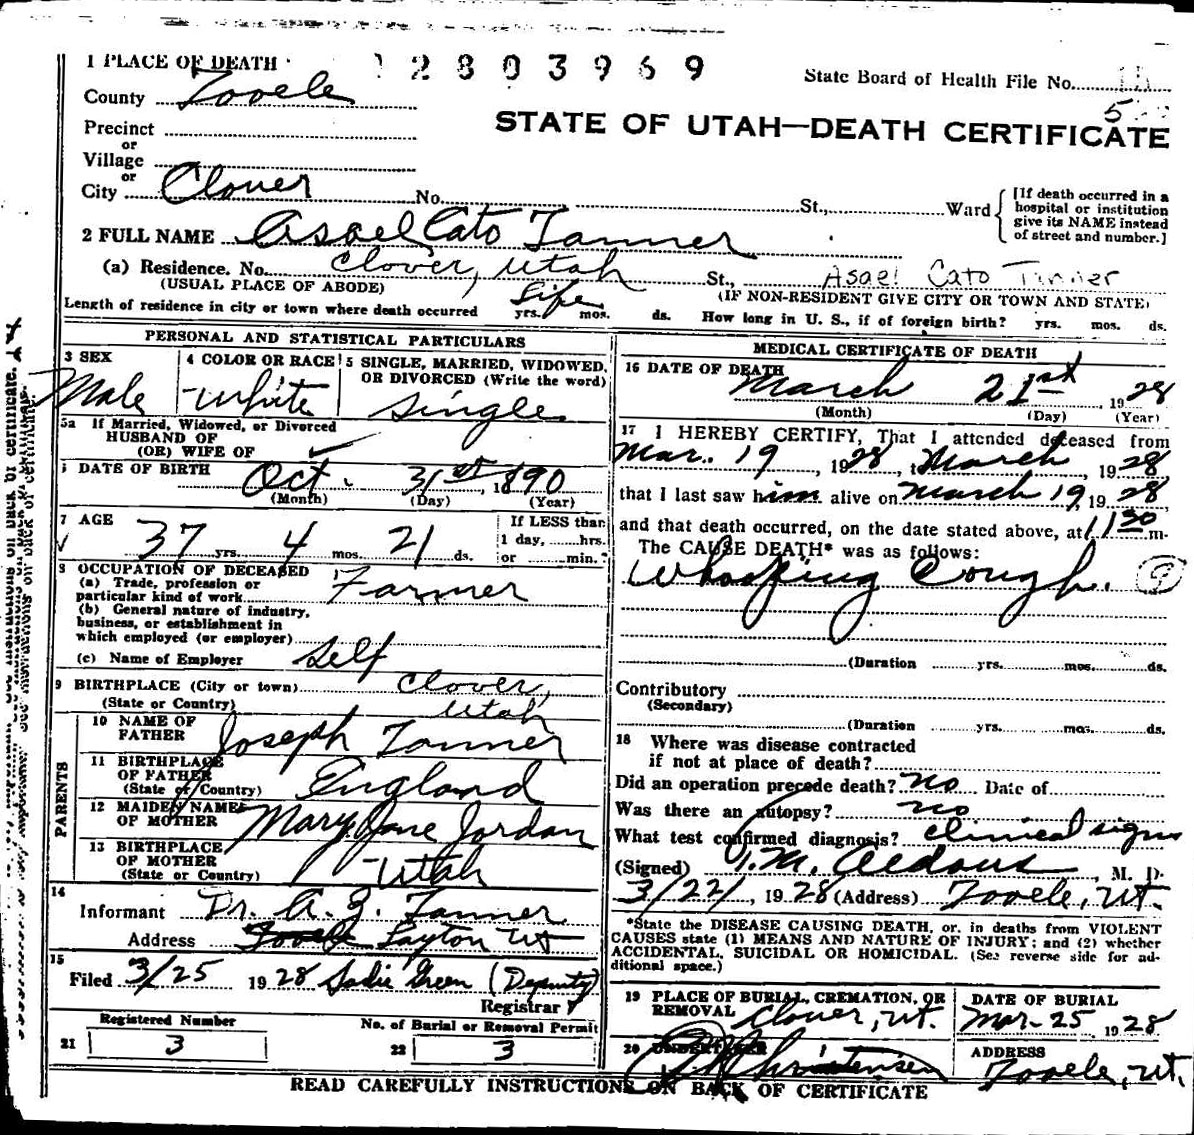 1 PLACE OF DEATH
12803969
State Board of Health File No.
County Tooele
5
STATE OF UTAH—DEATH CERTIFICATE
Precinct
or
Village
or
City Clover No. St., Ward
[If death occurred in a hospital or institution give its NAME instead of street and number.]
2 FULL NAME Asael Cato Tanner
(a) Residence. No. Clover, Utah St., Asael Cato Tanner
(USUAL PLACE OF ABODE) (IF NON-RESIDENT GIVE CITY OR TOWN AND STATE)
Length of residence in city or town where death occurred Life yrs. mos. ds. How long in U. S., if of foreign birth? yrs. mos. ds.
PERSONAL AND STATISTICAL PARTICULARS
3 SEX Male
4 COLOR OR RACE White
5 SINGLE, MARRIED, WIDOWED, OR DIVORCED (Write the word) Single
5a If Married, Widowed, or Divorced
HUSBAND OF
(OR) WIFE OF
DATE OF BIRTH Oct. 31st, 1890
(Month) (Day) (Year)
7 AGE 37 yrs. 4 mos. 21 ds.
If LESS than
1 day, hrs.
or min.
8 OCCUPATION OF DECEASED
(a) Trade, profession or
particular kind of work Farmer
(b) General nature of industry,
business, or establishment in
which employed (or employer)
(c) Name of Employer Self
9 BIRTHPLACE (City or town) Clover,
(State or Country) Utah
PARENTS
10 NAME OF FATHER Joseph Tanner
11 BIRTHPLACE OF FATHER (State or Country) England
12 MAIDEN NAME OF MOTHER Mary Jane Jordan
13 BIRTHPLACE OF MOTHER (State or Country) Utah
14
Informant Dr. A. Z. Tanner
Address Tooele Layton Ut
15
Filed 3/25 1928 Sadie Green (Deputy)
Registrar
Registered Number
21 3
No. of Burial or Removal Permit
22 3
MEDICAL CERTIFICATE OF DEATH
16 DATE OF DEATH March 21st, 1928
(Month) (Day) (Year)
17 I HEREBY CERTIFY, That I attended deceased from
Mar. 19, 1928, t March 1928
that I last saw him alive on March 19, 1928
and that death occurred, on the date stated above, at 11 30 m.
The CAUSE DEATH* was as follows:
Whooping Cough. 9
(Duration yrs. mos. ds.
Contributory
(Secondary)
(Duration yrs. mos. ds.
18 Where was disease contracted
if not at place of death?
Did an operation precede death? no Date of
Was there an autopsy? no
What test confirmed diagnosis? clinical signs
(Signed) J. M. Aldous, M. D.
3/22/, 1928 (Address) Tooele, Ut.
*State the DISEASE CAUSING DEATH, or, in deaths from VIOLENT
CAUSES state (1) MEANS AND NATURE OF INJURY; and (2) whether
ACCIDENTAL, SUICIDAL OR HOMICIDAL. (See reverse side for ad-
ditional space.)
19 PLACE OF BURIAL, CREMATION, OR REMOVAL Clover, Ut.
DATE OF BURIAL
Mar-25 1928
20 UNDERTAKER Christensen
ADDRESS
Tooele, Ut.
READ CAREFULLY INSTRUCTIONS ON BACK OF CERTIFICATE